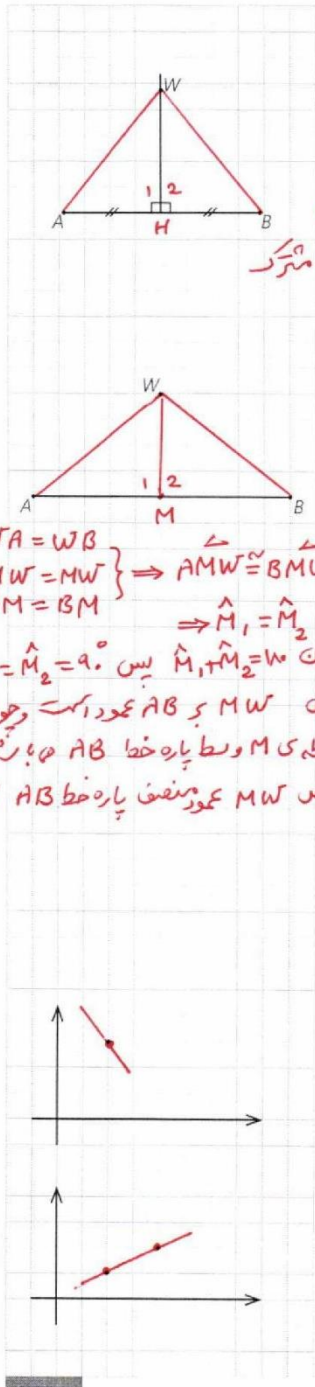 W
1 2
A H B
مشترک
W
1 2
A M B
A = WB
MW = MW } ⇒ AMW ≅ BMW
M = BM
⇒ M̂₁ = M̂₂
M̂₁ + M̂₂ = ۱۸۰ پس = M̂₂ = ۹۰°
WM بر AB عمود است و چون
M وسط پاره خط AB
MW عمود منصف پاره خط AB